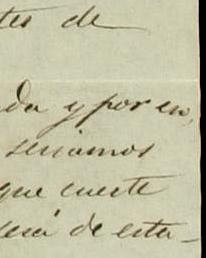 tes de
da y por en,
seriamos
que cueste
será de esta-